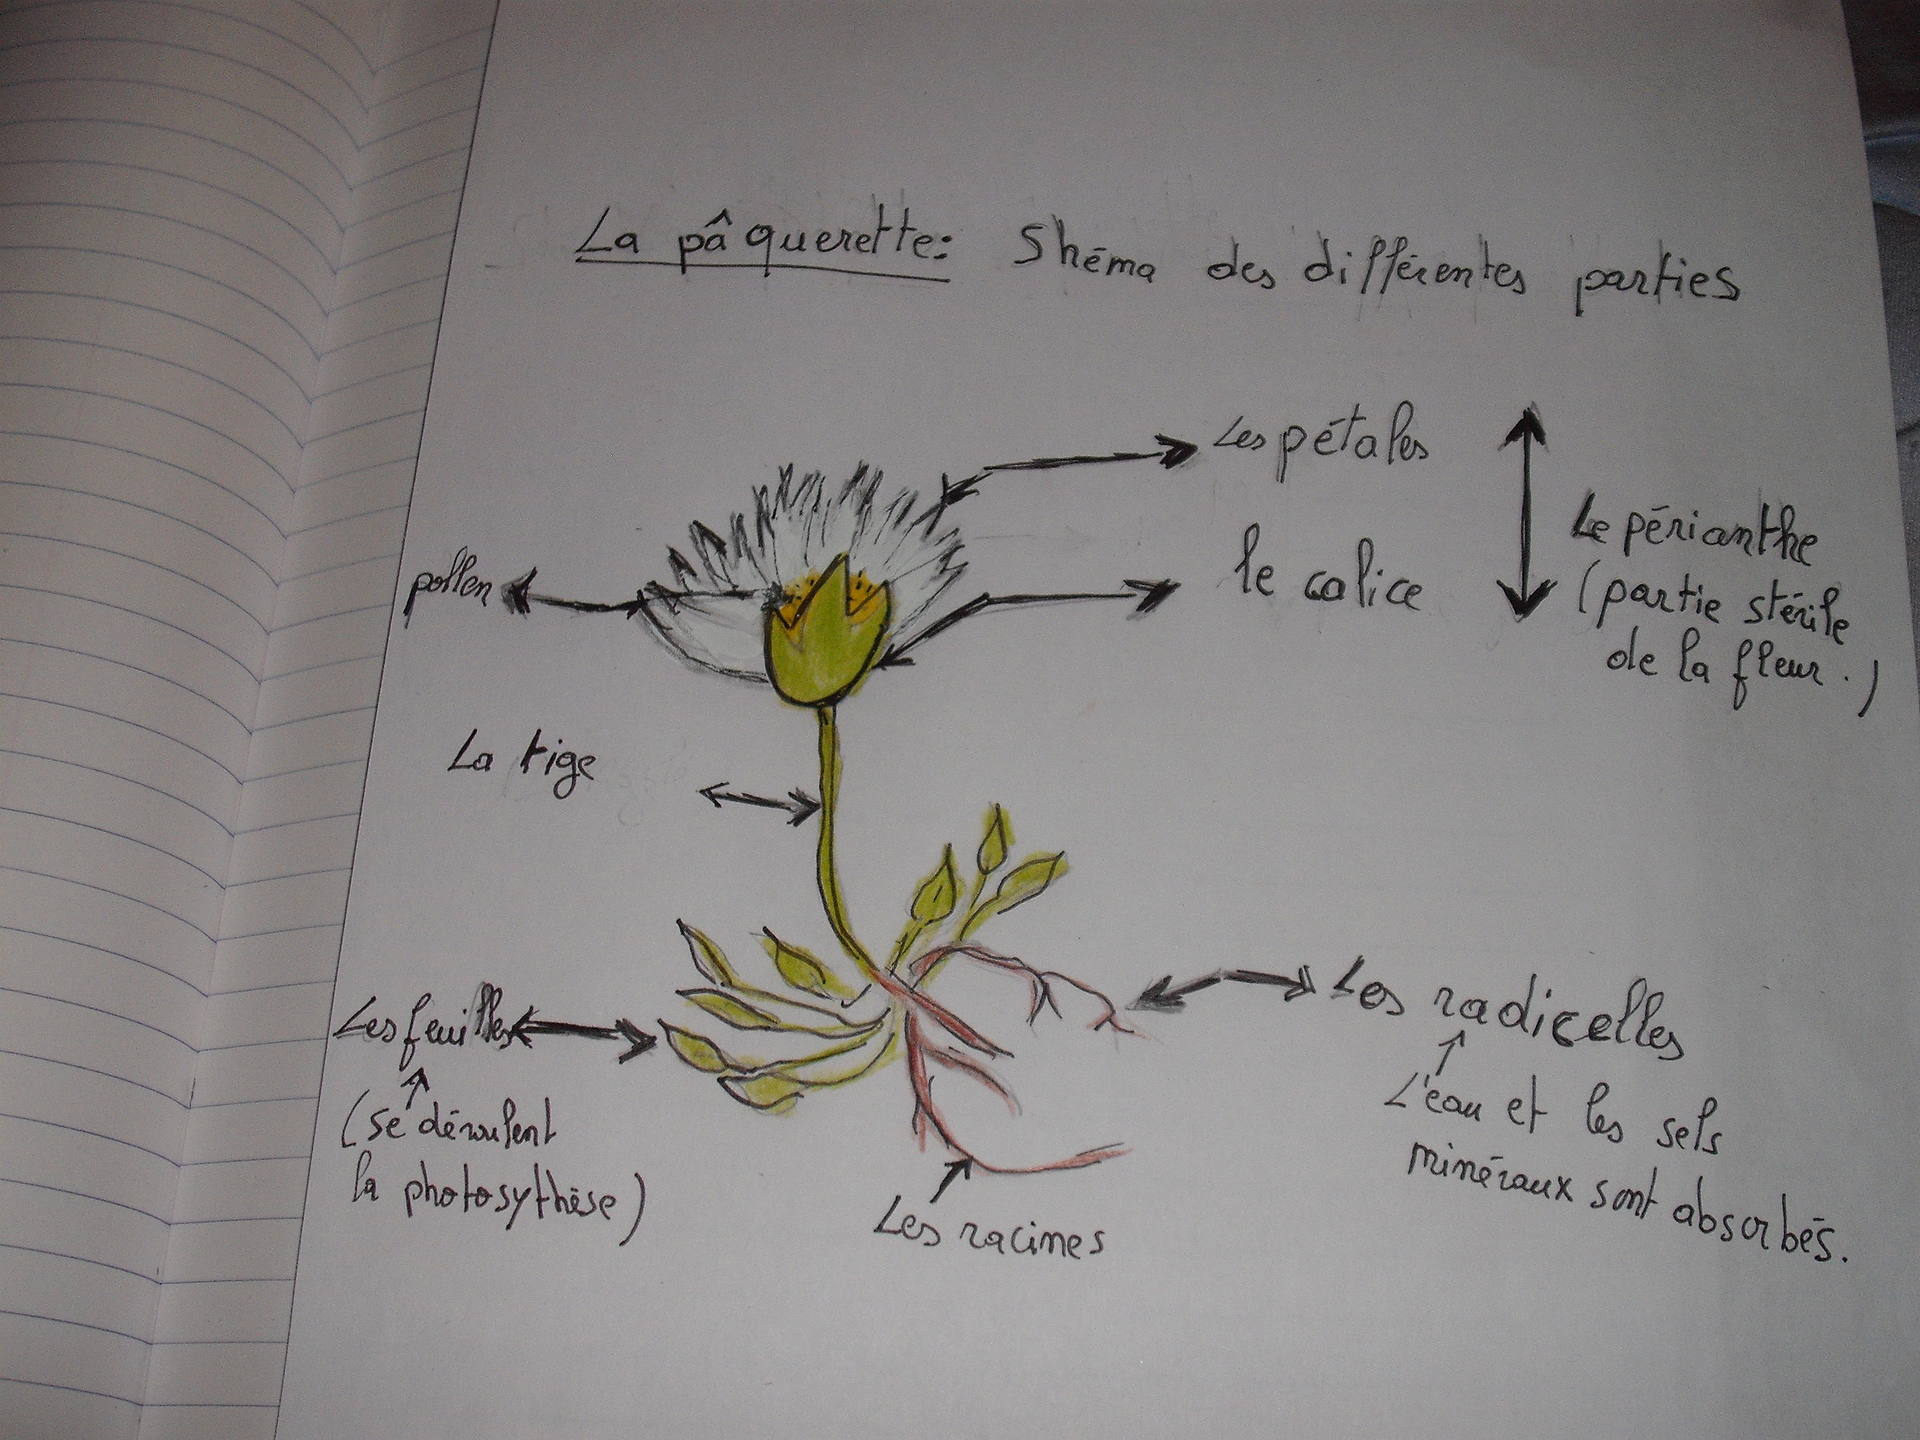 La pâquerette: Shéma des différentes parties
Les pétales
le calice
Le périanthe
(partie stérile
de la fleur.)
pollen
La tige
Les feuilles
(se déroulent
la photosythèse)
Les radicelles
L'eau et les sels
minéraux sont absorbés.
Les racines